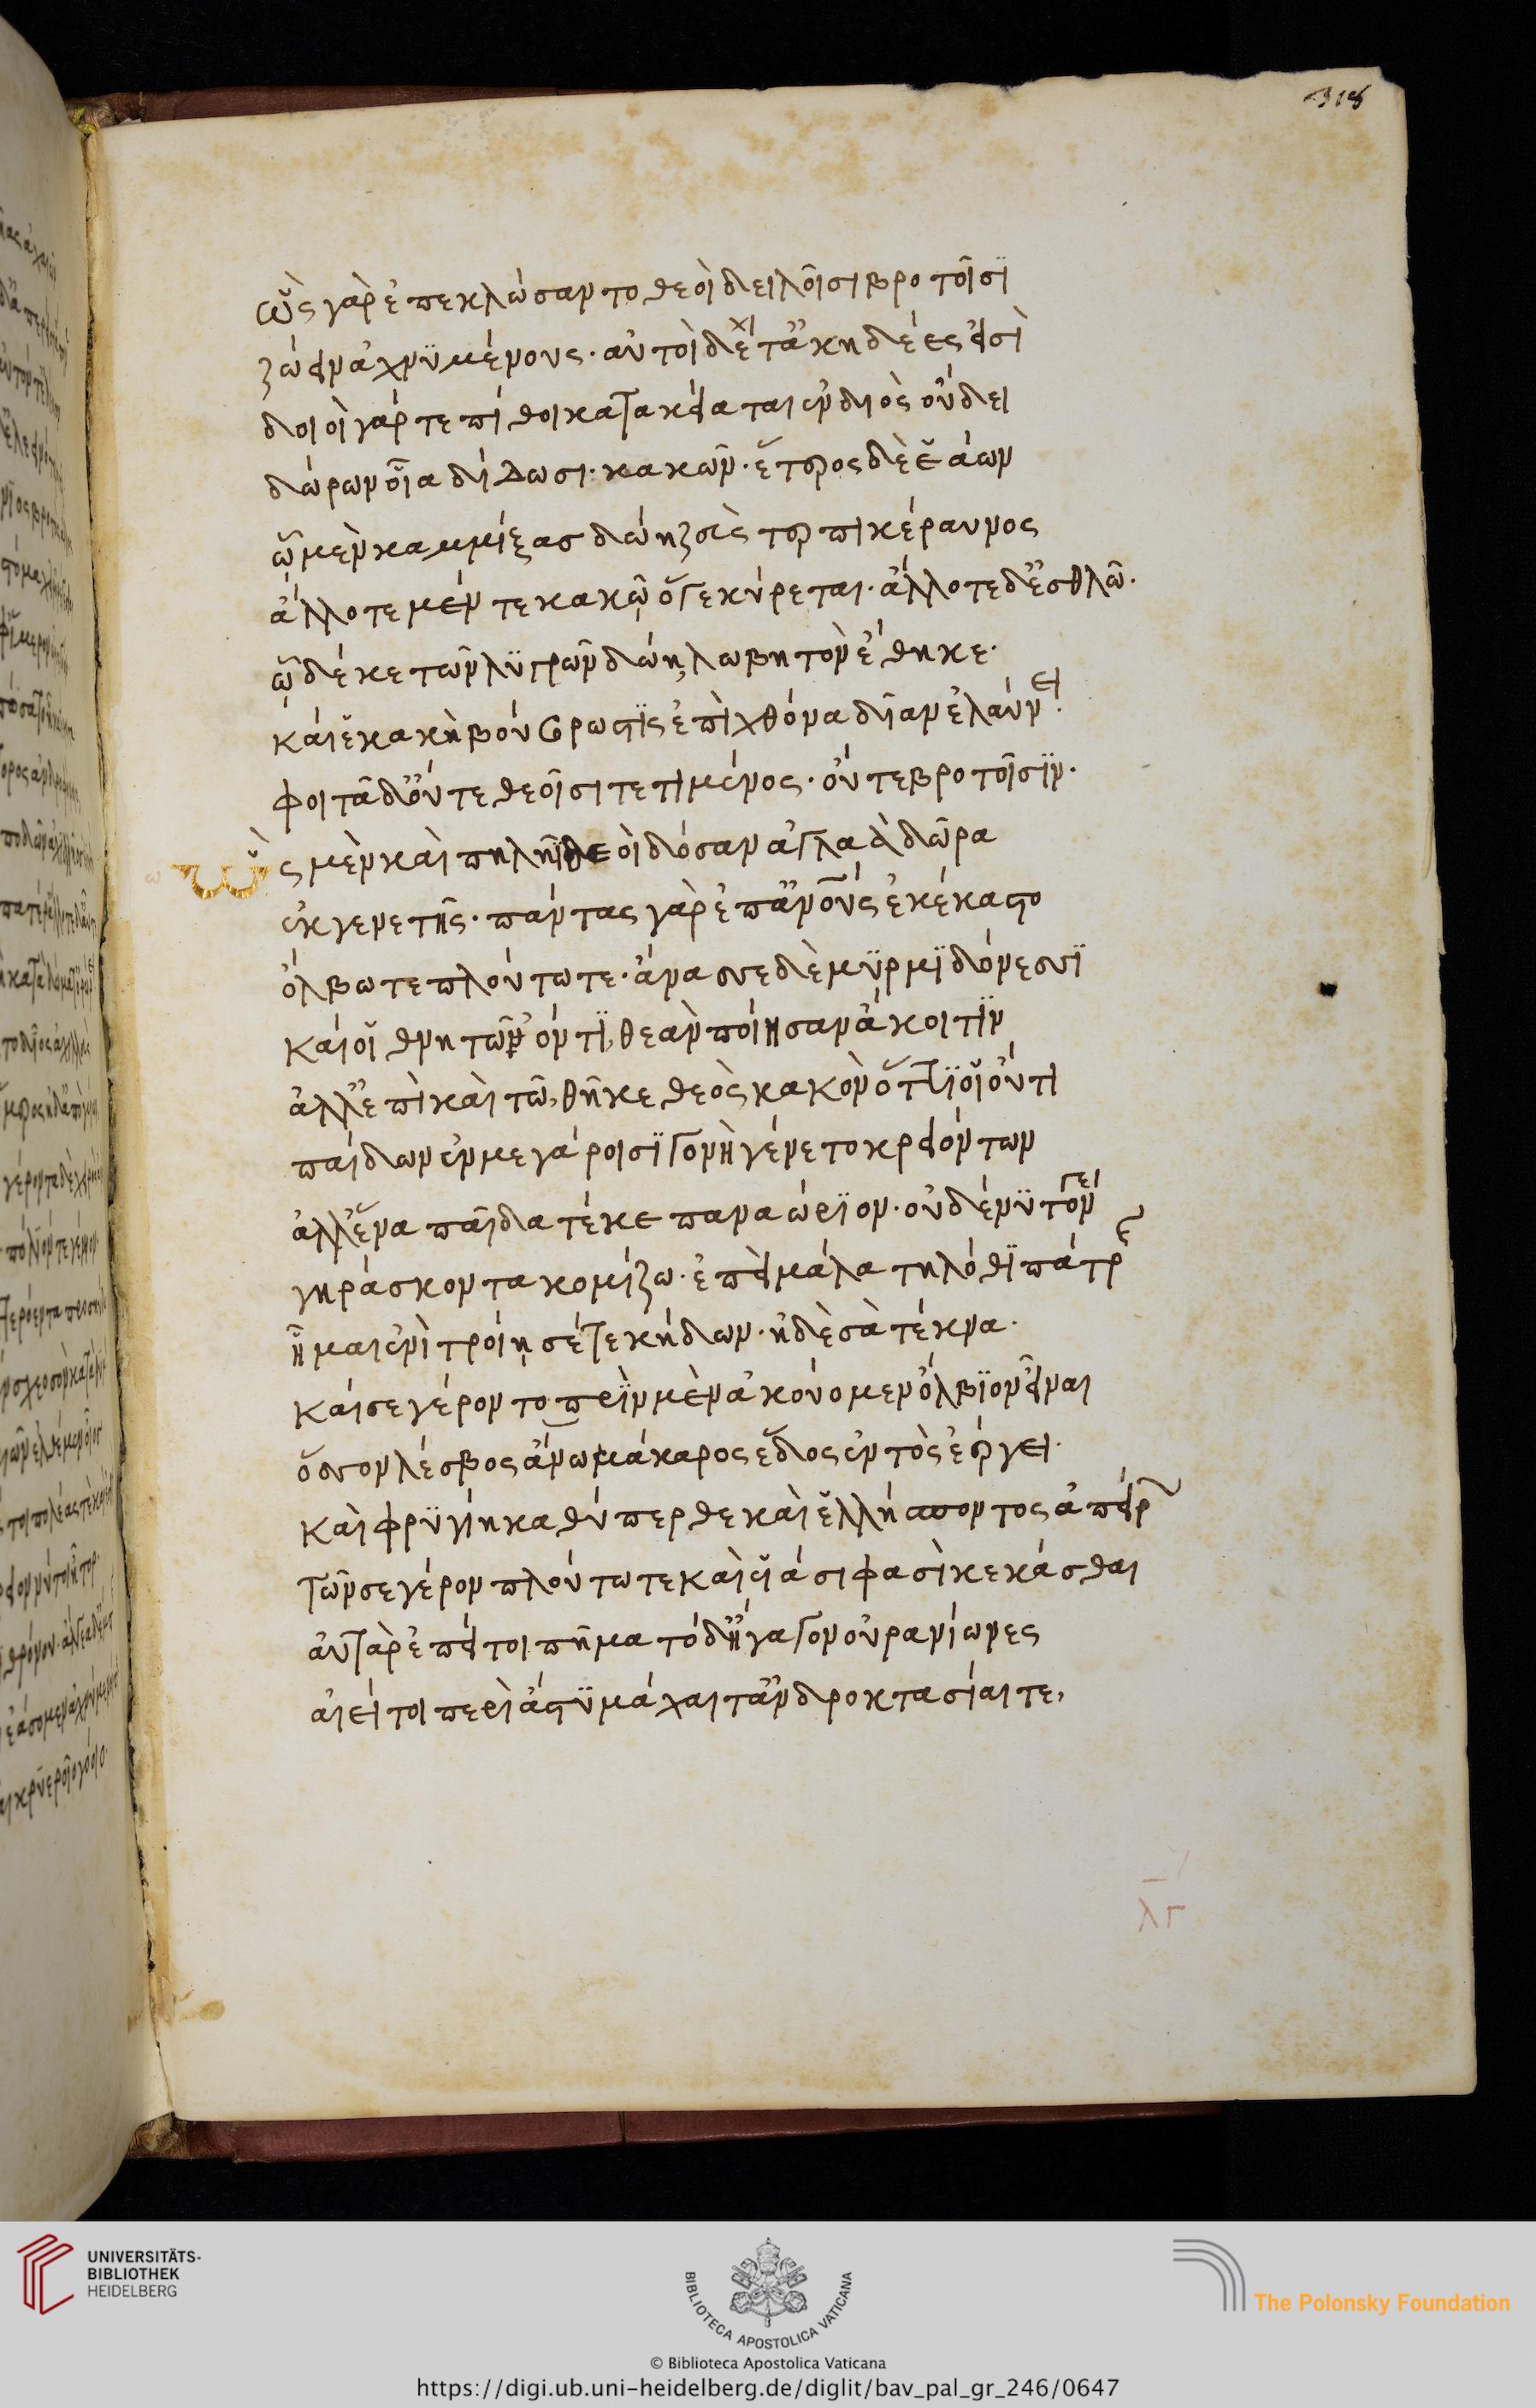 318
ὣς γὰρ ἐπεκλώσαντο θεοὶ δειλοῖσι βροτοῖσϊ
ζώειν ἀχνϋμένους· αὐτοὶ δέ τ' ἀκηδέες εἰσὶ
δοιοὶ γάρ τε πίθοι κατακείαται ἐν διὸς οὔδει
δώρων οἷα δίδωσι· κακῶν· ἕτερος δὲ ἐάων
ᾧ μὲν καμμίξας δώῃ ζεὺς τερπικέραυνος
ἄλλοτε μέν τε κακῷ ὅγε κύρεται· ἄλλοτε δ' ἐσθλῷ·
ᾧ δέ κε τῶν λϋγρῶν δώῃ, λωβητὸν ἔθηκε·
καί ἑ κακὴ βούβρωστϊς ἐπὶ χθόνα δῖαν ἐλαύνει·
φοιτᾶ δ' οὔτε θεοῖσι τετιμένος· οὔτε βροτοῖσϊν·
ὣς μὲν καὶ πηλῆϊ θεοὶ δόσαν ἀγλαὰ δῶρα
ἐκ γενετῆς· πάντας γὰρ ἐπ' ἀνθρώπους ἐκέκαστο
ὄλβω τε πλούτω τε· ἄνασσε δὲ μϋρμϊδόνεσσϊ
καί οἱ θνητῶ ἐόντϊ, θεὰν ποίησαν ἄκοιτϊν
ἀλλ' ἐπὶ καὶ τῶ, θῆκε θεὸς κακὸν ὅττϊ οἱ οὔτι
παίδων ἐν μεγάροισϊ γονὴ γένετο κρειόντων
ἀλλ' ἕνα παῖδα τέκε παναώρϊον· οὐδέ νϋ τόν γε
γηράσκοντα κομίζω· ἐπεὶ μάλα τηλόθϊ πάτρης
ἧμαι ἐνὶ τροίῃ σέ τε κήδων· ἠδὲ σὰ τέκνα·
καί σε γέρον τοπρὶν μὲν ἀκούομεν ὄλβϊον εἶναι
ὅσσον λέσβος ἄνω μάκαρος ἕδος ἐντὸς ἐέργει·
καὶ φρϋγίη καθύπερθε καὶ ἑλλήσποντος ἀπείρων
τῶν σε γέρον πλούτω τε καὶ υἱάσι φασὶ κεκάσθαι
αὐτὰρ ἐπεί τοι πῆμα τόδ' ἤγαγον οὐρανίωνες
αἰεί τοι περὶ ἄστϋ μάχαι τ' ἀνδροκτασίαι τε,
ω
λγ
UNIVERSITÄTS-
BIBLIOTHEK
HEIDELBERG
BIBLIOTECA APOSTOLICA VATICANA
The Polonsky Foundation
© Biblioteca Apostolica Vaticana
https://digi.ub.uni-heidelberg.de/diglit/bav_pal_gr_246/0647